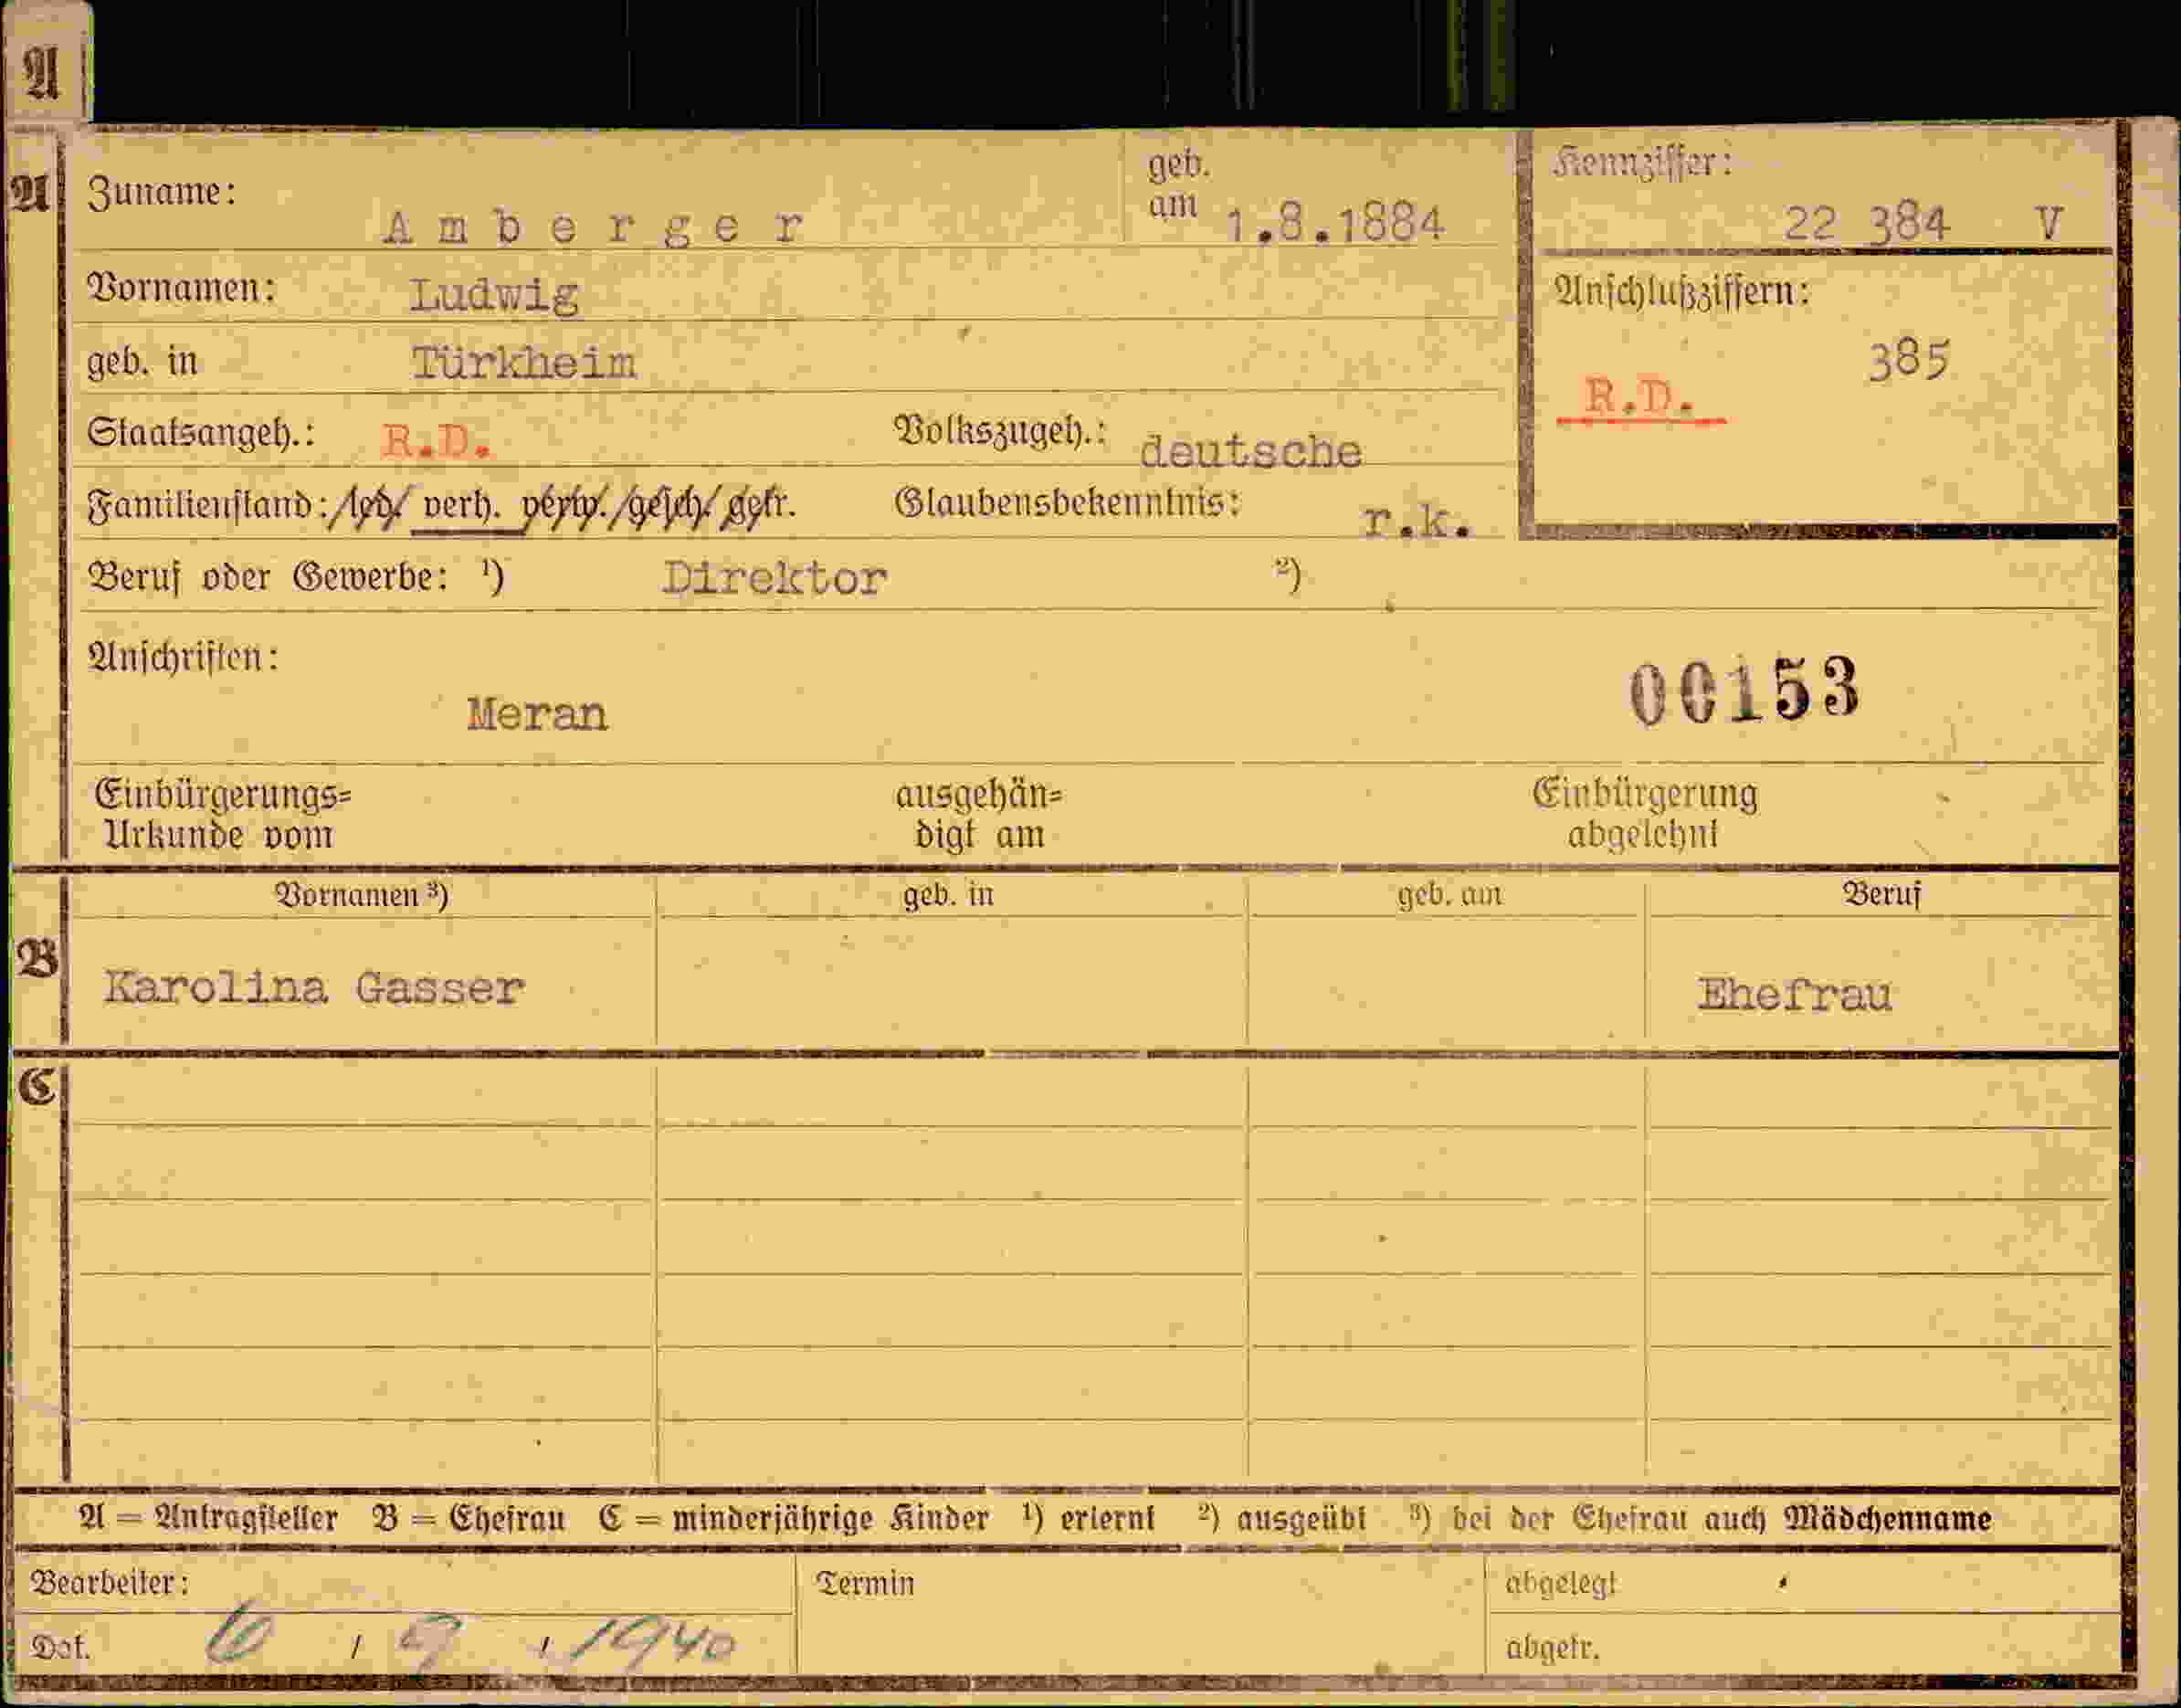 A
A Zuname: Amberger geb. am 1.8.1884 Kennziffer: 22 384 V
Vornamen: Ludwig Anschlußziffern:
geb. in Türkheim 385
R.D.
Staatsangeh.: R.D. Volkszugeh.: deutsche
Familienstand: led. verh. verw. gesch. getr. Glaubensbekenntnis: r.k.
Beruf oder Gewerbe: ¹) Direktor ²)
Anschriften:
Meran 00153
Einbürgerungs= ausgehän= Einbürgerung
Urkunde vom digt am abgelehnt
Vornamen ³) geb. in geb. am Beruf
B Karolina Gasser Ehefrau
C
A = Antragsteller B = Ehefrau C = minderjährige Kinder ¹) erlernt ²) ausgeübt ³) bei der Ehefrau auch Mädchenname
Bearbeiter: Termin abgelegt
Dat. 6 / 9 / 1940 abgetr.